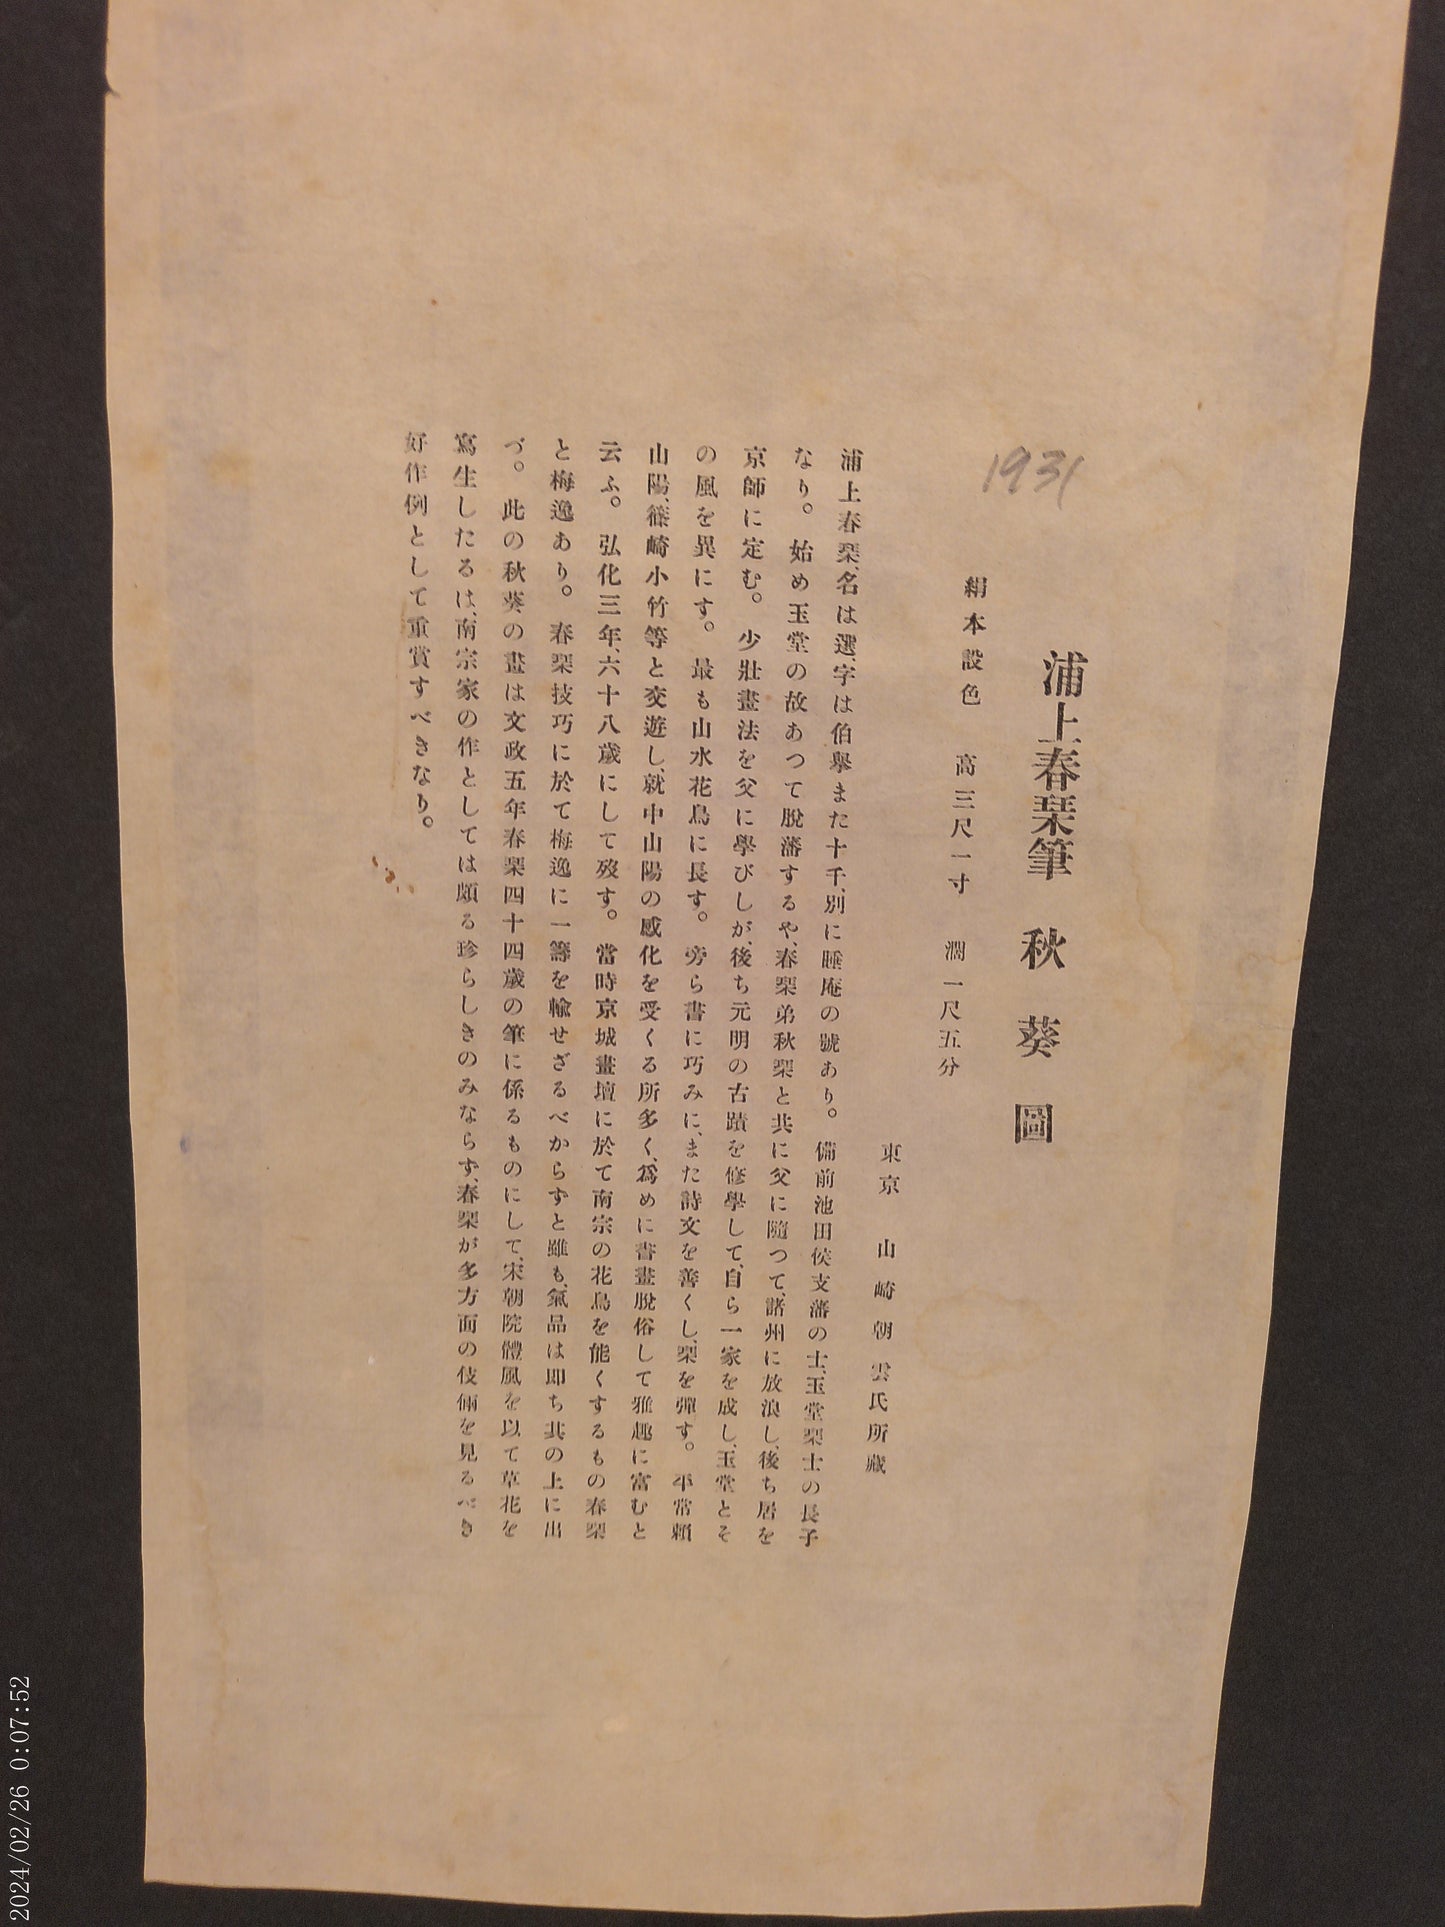 1931
浦上春琹筆　秋葵圖
絹本設色　高三尺一寸　濶一尺五分
東京　山崎朝雲氏所藏
浦上春琹、名は選、字は伯擧また十千、別に睡庵の號あり。備前池田侯支藩の士、玉堂琹士の長子
なり。始め玉堂の故あつて脫藩するや、春琹弟秋琹と共に父に隨つて、諸州に放浪し、後ち居を
京師に定む。少壯畫法を父に學びしが、後ち元明の古蹟を修學して、自ら一家を成し、玉堂とそ
の風を異にす。最も山水花鳥に長す。旁ら書に巧みに、また詩文を善くし、琹を彈す。平常賴
山陽、篠崎小竹等と交遊し、就中山陽の感化を受くる所多く、爲めに書畫脫俗して雅趣に富むと
云ふ。弘化三年、六十八歲にして歿す。當時京城畫壇に於て南宗の花鳥を能くするもの春琹
と梅逸あり。春琹技巧に於て梅逸に一籌を輸せざるべからずと雖も、氣品は卽ち其の上に出
づ。此の秋葵の畫は文政五年春琹四十四歲の筆に係るものにして、宋朝院體風を以て草花を
寫生したるは、南宗家の作としては頗る珍らしきのみならず、春琹が多方面の伎倆を見るべき
好作例として重賞すべきなり。
2024/02/26 0:07:52